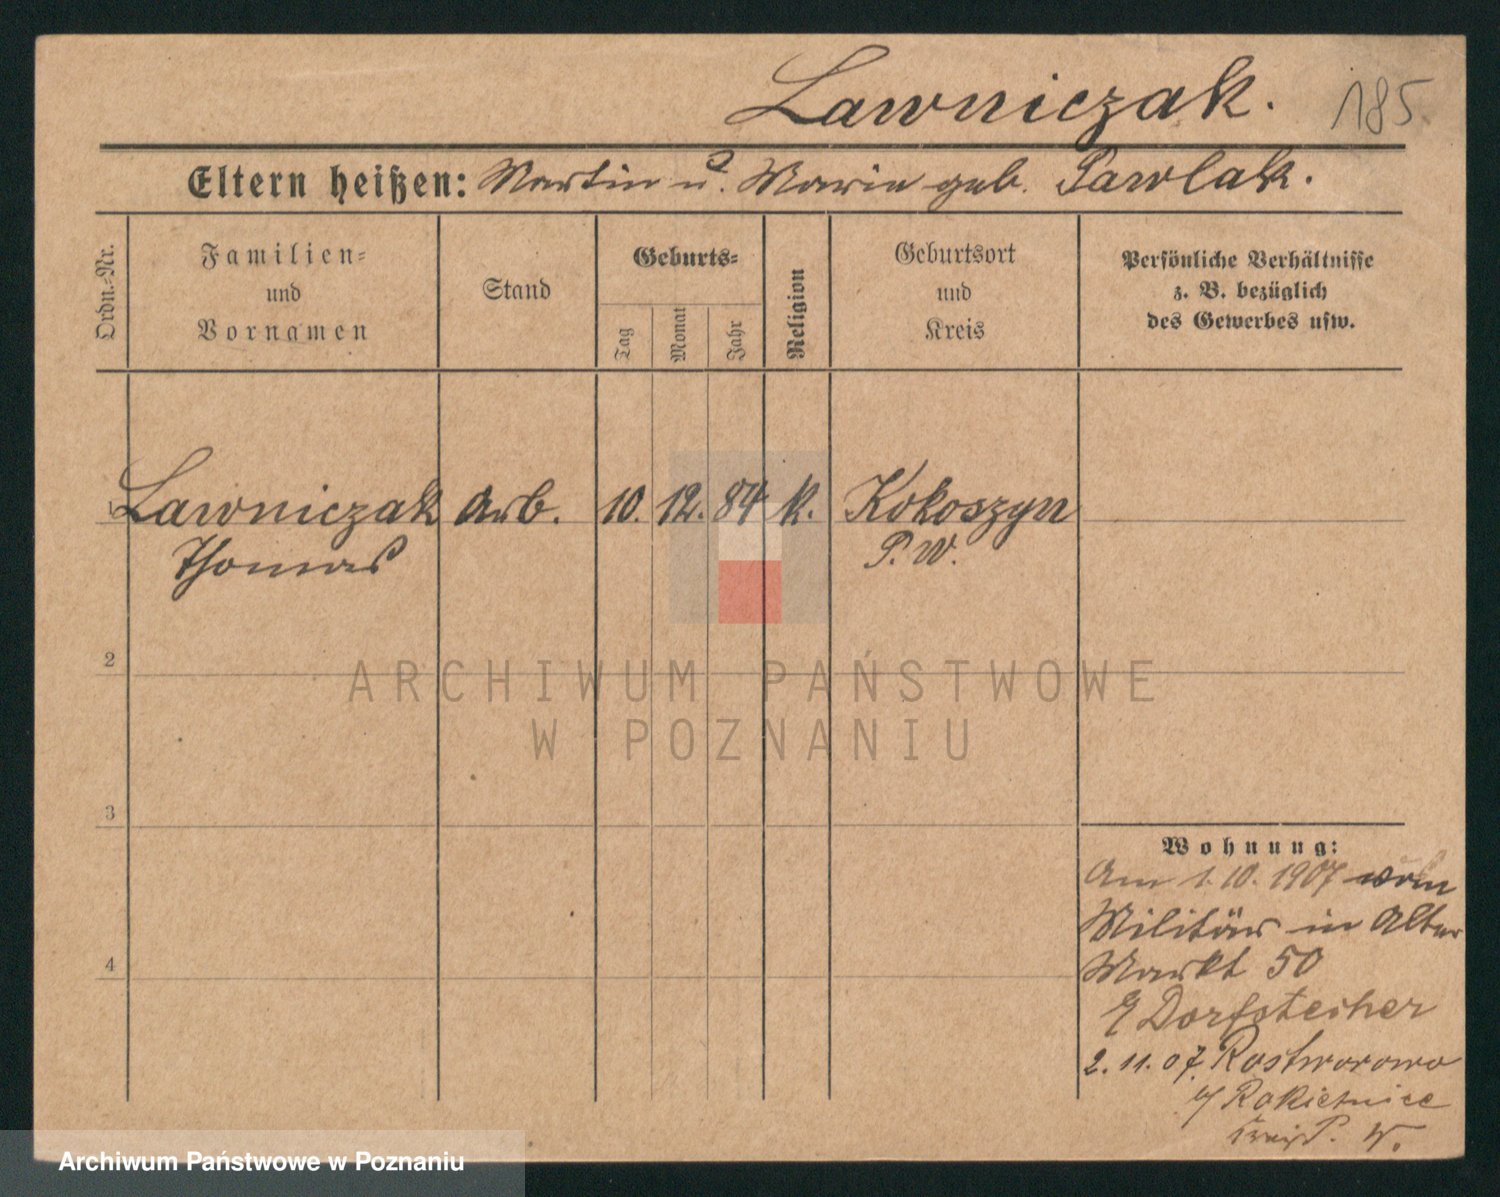 Lawniczak. 185
Eltern heißen: Martin u. Marie geb. Pawlak.
Ordn.-Nr.
Familien-
und
Vornamen
Stand
Geburts-
Tag
Monat
Jahr
Religion
Geburtsort
und
Kreis
Persönliche Verhältnisse
z. B. bezüglich
des Gewerbes usw.
1 Lawniczak Arb. 10. 12. 84 k. Kokoszyn
Thomas P. W.
2
ARCHIWUM PAŃSTWOWE
W POZNANIU
3
Wohnung:
Am 1.10.1907 vom
Militär in Alter
Markt 50
Dorfstecher
2.11.07. Rostworowo
Rokietnice
Kreis P. W.
4
Archiwum Państwowe w Poznaniu